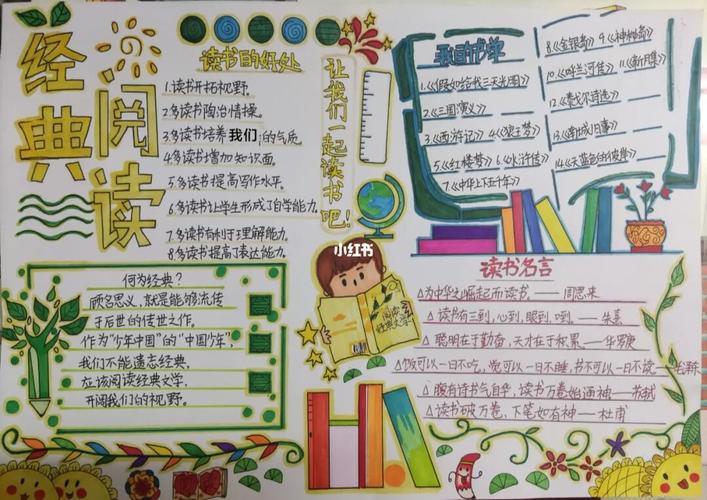 经典
阅读
读书的好处
1.读书开拓视野.
2.多读书陶冶情操.
3.多读书培养我们的气质.
4.多读书增加知识面.
5.多读书提高写作水平.
6.多读书让学生形成了自学能力.
7.多读书有利于理解能力.
8.多读书提高了表达能力.
让我们一起读书吧!
我的书单
1.《假如给我三天光明》
2.《三国演义》
3.《西游记》 4.《狼王梦》
5.《红楼梦》 6.《水浒传》
7.《中华上下五千年》
8.《金银岛》 9.《神秘岛》
10.《呼兰河传》 11.《新月集》
12.《泰戈尔诗选》
13.《南城旧事》
14.《天蓝色的彼岸》
何为经典?
顾名思义,就是能够流传
于后世的传世之作。
作为“少年中国”的“中国少年”
我们不能遗忘经典,
应该阅读经典文学,
开阔我们的视野。
小红书
阅读
经典文学
读书名言
为中华之崛起而读书。——周恩来
读书有三到,心到,眼到,口到。——朱熹
聪明在于勤奋,天才在于积累——华罗庚
饭可以一日不吃,觉可以一日不睡,书不可以一日不读——毛泽东
腹有诗书气自华,读书万卷始通神——苏轼
读书破万卷,下笔如有神——杜甫